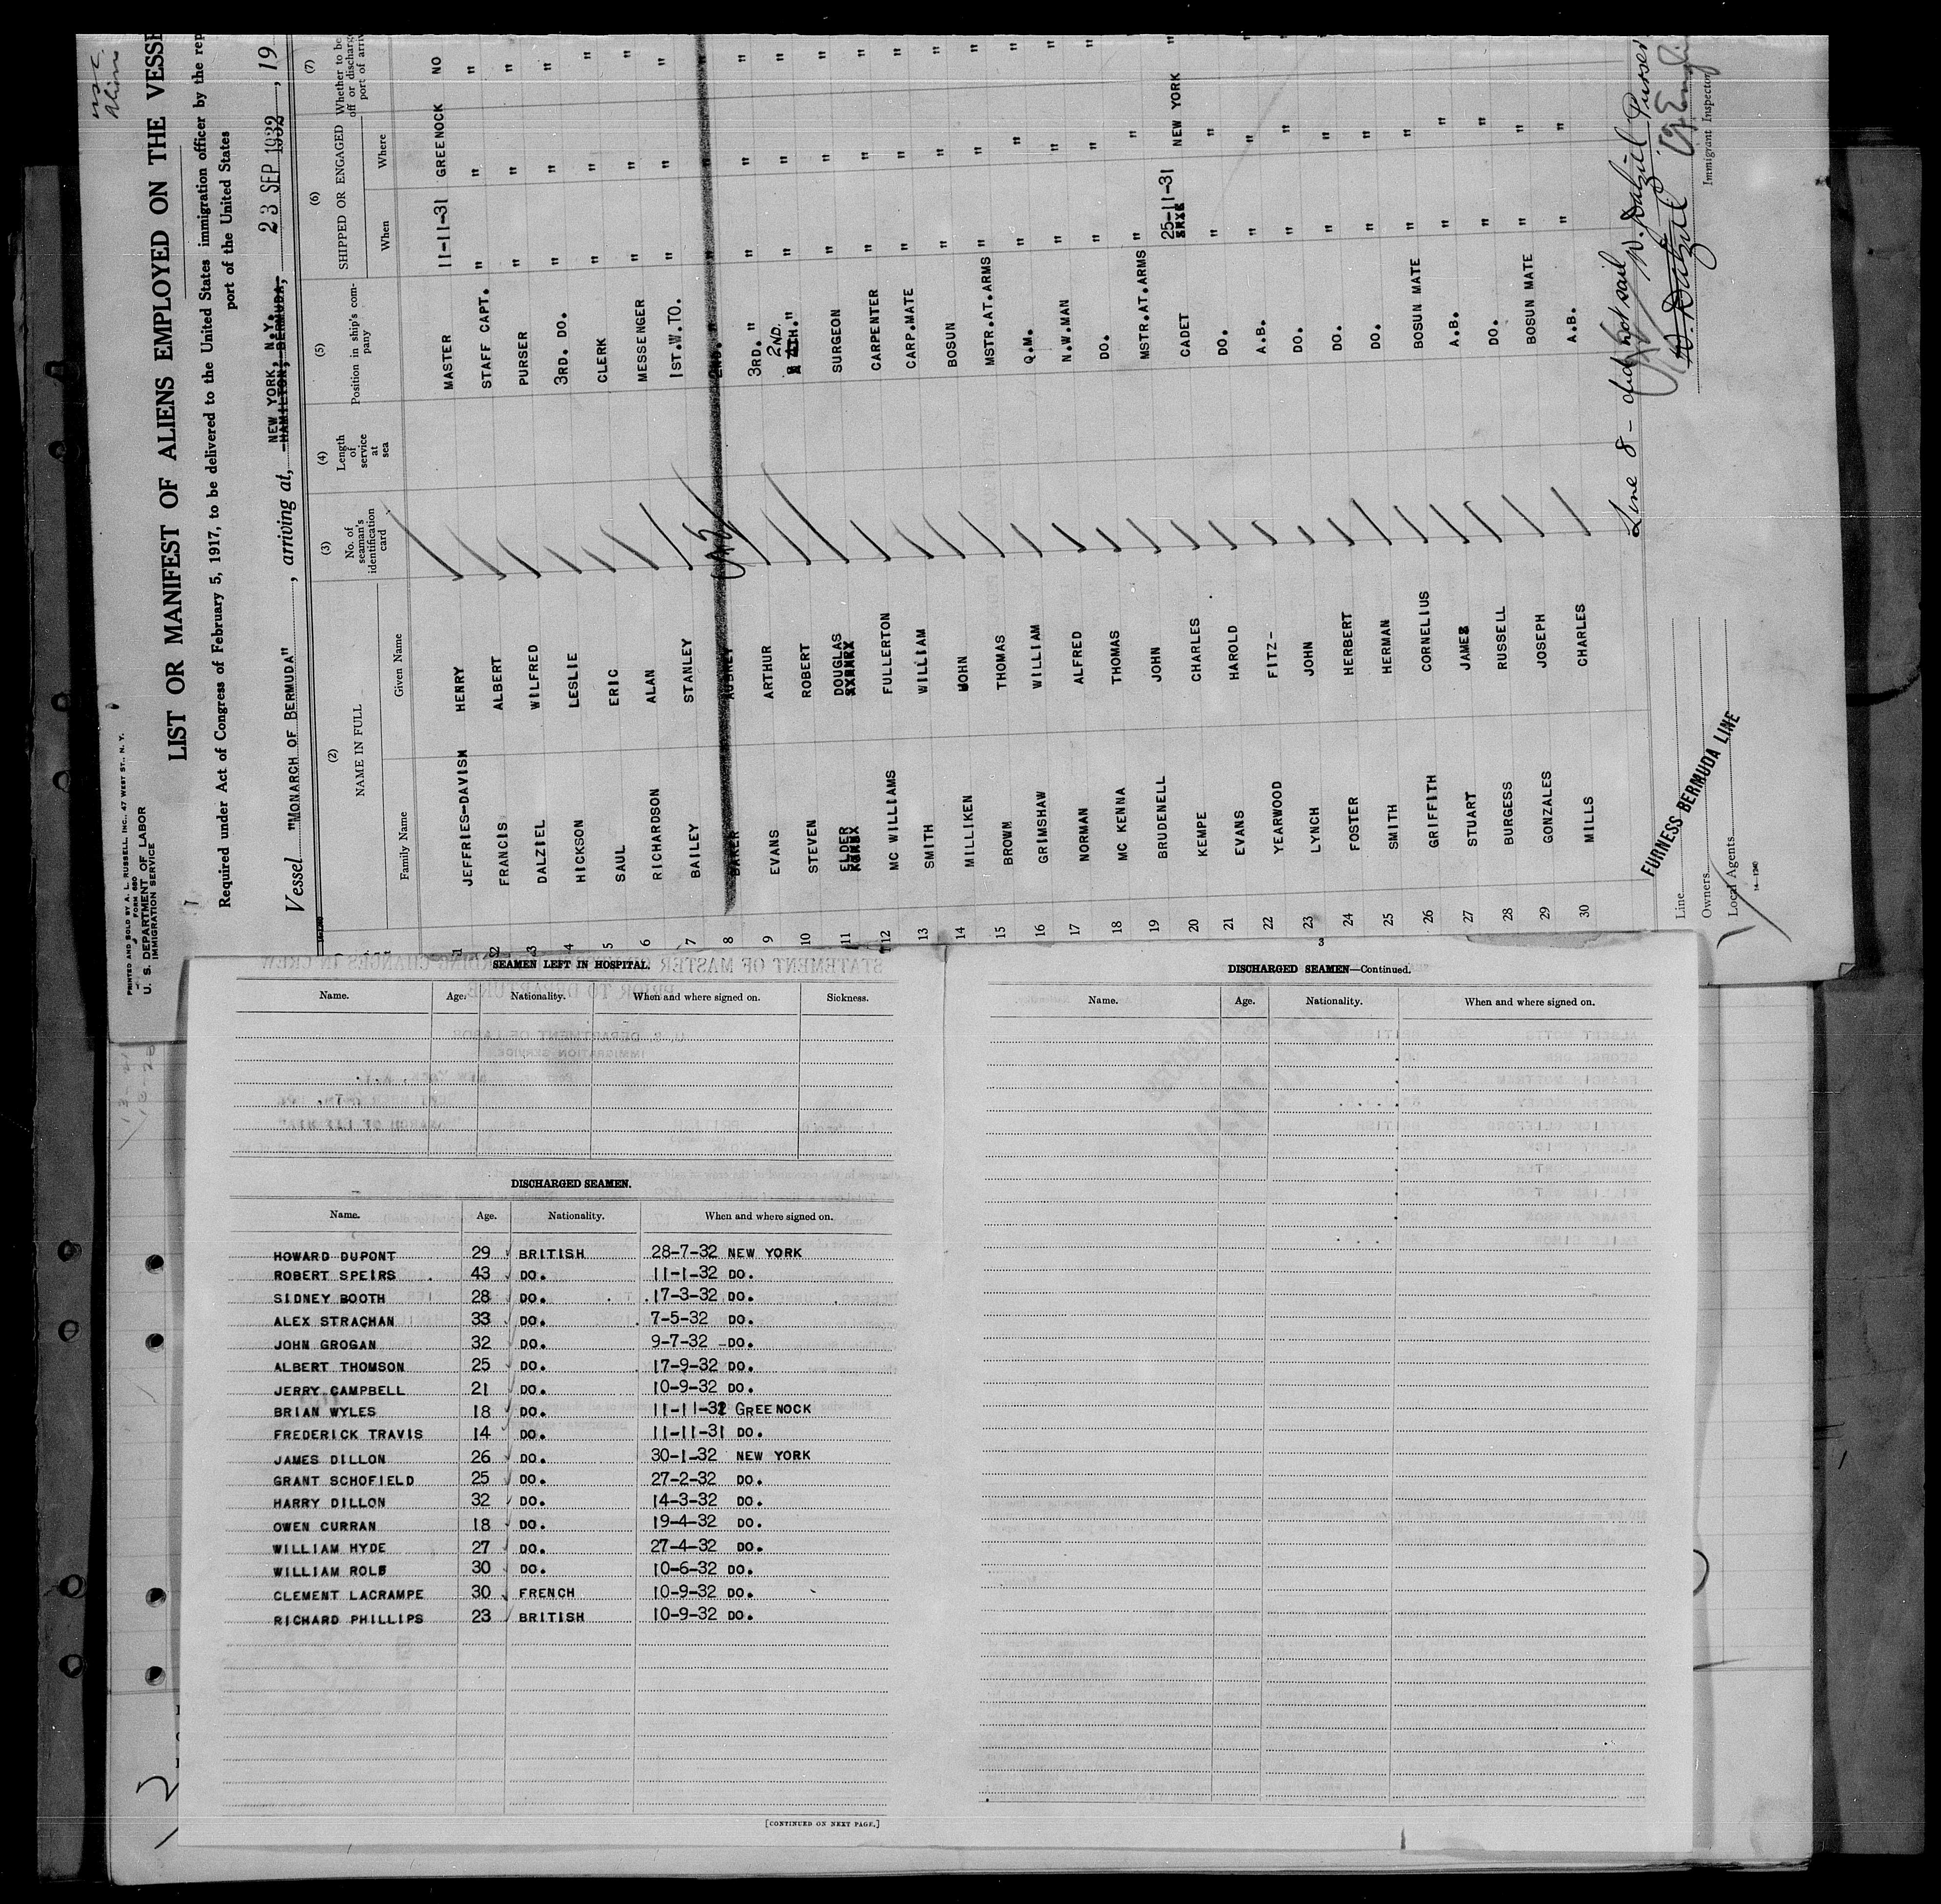 PRINTED AND SOLD BY A. L. RUSSELL, INC., 47 WEST ST., N. Y.
FORM 680
U. S. DEPARTMENT OF LABOR
IMMIGRATION SERVICE
LIST OR MANIFEST OF ALIENS EMPLOYED ON THE VESSE
Required under Act of Congress of February 5, 1917, to be delivered to the United States immigration officer by the rep
port of the United States
NEW YORK, N.Y.
Vessel "MONARCH OF BERMUDA", arriving at, HAMILTON, BERMUDA, 23 SEP 1932, 19
(2) (3) (4) (5) (6) (7)
NAME IN FULL No. of seaman's identification card Length of service at sea Position in ship's company SHIPPED OR ENGAGED Whether to be
off or discharg
port of arriv
Family Name Given Name When Where
1 JEFFRIES-DAVISN HENRY MASTER 11-11-31 GREENOCK NO
2 FRANCIS ALBERT STAFF CAPT. " " "
3 DALZIEL WILFRED PURSER " " "
4 HICKSON LESLIE 3RD. DO. " " "
5 SAUL ERIC CLERK " " "
6 RICHARDSON ALAN MESSENGER " " "
7 BAILEY STANLEY 1ST.W.TO. " " "
8 BAKER AUBREY 2ND. " " " "
9 EVANS ARTHUR 3RD. " " " "
10 STEVEN ROBERT 2ND. " " " "
11 ELDER DOUGLAS SURGEON " " "
12 MC WILLIAMS FULLERTON CARPENTER " " "
13 SMITH WILLIAM CARP.MATE " " "
14 MILLIKEN JOHN BOSUN " " "
15 BROWN THOMAS MSTR.AT.ARMS " " "
16 GRIMSHAW WILLIAM Q.M. " " "
17 NORMAN ALFRED N.W.MAN " " "
18 MC KENNA THOMAS DO. " " "
19 BRUDENELL JOHN MSTR.AT.ARMS " "
20 KEMPE CHARLES CADET 25-11-31 NEW YORK "
21 EVANS HAROLD DO. " "
22 YEARWOOD FITZ- A.B. " "
23 LYNCH JOHN DO. " "
24 FOSTER HERBERT DO. " "
25 SMITH HERMAN DO. " "
26 GRIFFITH CORNELIUS BOSUN MATE " "
27 STUART JAMES A.B. " "
28 BURGESS RUSSELL DO. " "
29 GONZALES JOSEPH BOSUN MATE " "
30 MILLS CHARLES A.B. " "
Line 8 - did not sail
W. Dalziel Purser
W. Dalziel
Immigrant Inspector
FURNESS BERMUDA LINE
Line
Owners
Local Agents
14-1240
SEAMEN LEFT IN HOSPITAL.
Name. Age. Nationality. When and where signed on. Sickness.
DISCHARGED SEAMEN.
Name. Age. Nationality. When and where signed on.
HOWARD DUPONT 29 BRITISH 28-7-32 NEW YORK
ROBERT SPEIRS 43 DO. 11-1-32 DO.
SIDNEY BOOTH 28 DO. 17-3-32 DO.
ALEX STRACHAN 33 DO. 7-5-32 DO.
JOHN GROGAN 32 DO. 9-7-32 DO.
ALBERT THOMSON 25 DO. 17-9-32 DO.
JERRY CAMPBELL 21 DO. 10-9-32 DO.
BRIAN WYLES 18 DO. 11-11-31 GREENOCK
FREDERICK TRAVIS 14 DO. 11-11-31 DO.
JAMES DILLON 26 DO. 30-1-32 NEW YORK
GRANT SCHOFIELD 25 DO. 27-2-32 DO.
HARRY DILLON 32 DO. 14-3-32 DO.
OWEN CURRAN 18 DO. 19-4-32 DO.
WILLIAM HYDE 27 DO. 27-4-32 DO.
WILLIAM ROLE 30 DO. 10-6-32 DO.
CLEMENT LACRAMPE 30 FRENCH 10-9-32 DO.
RICHARD PHILLIPS 23 BRITISH 10-9-32 DO.
[CONTINUED ON NEXT PAGE.]
DISCHARGED SEAMEN—Continued.
Name. Age. Nationality. When and where signed on.